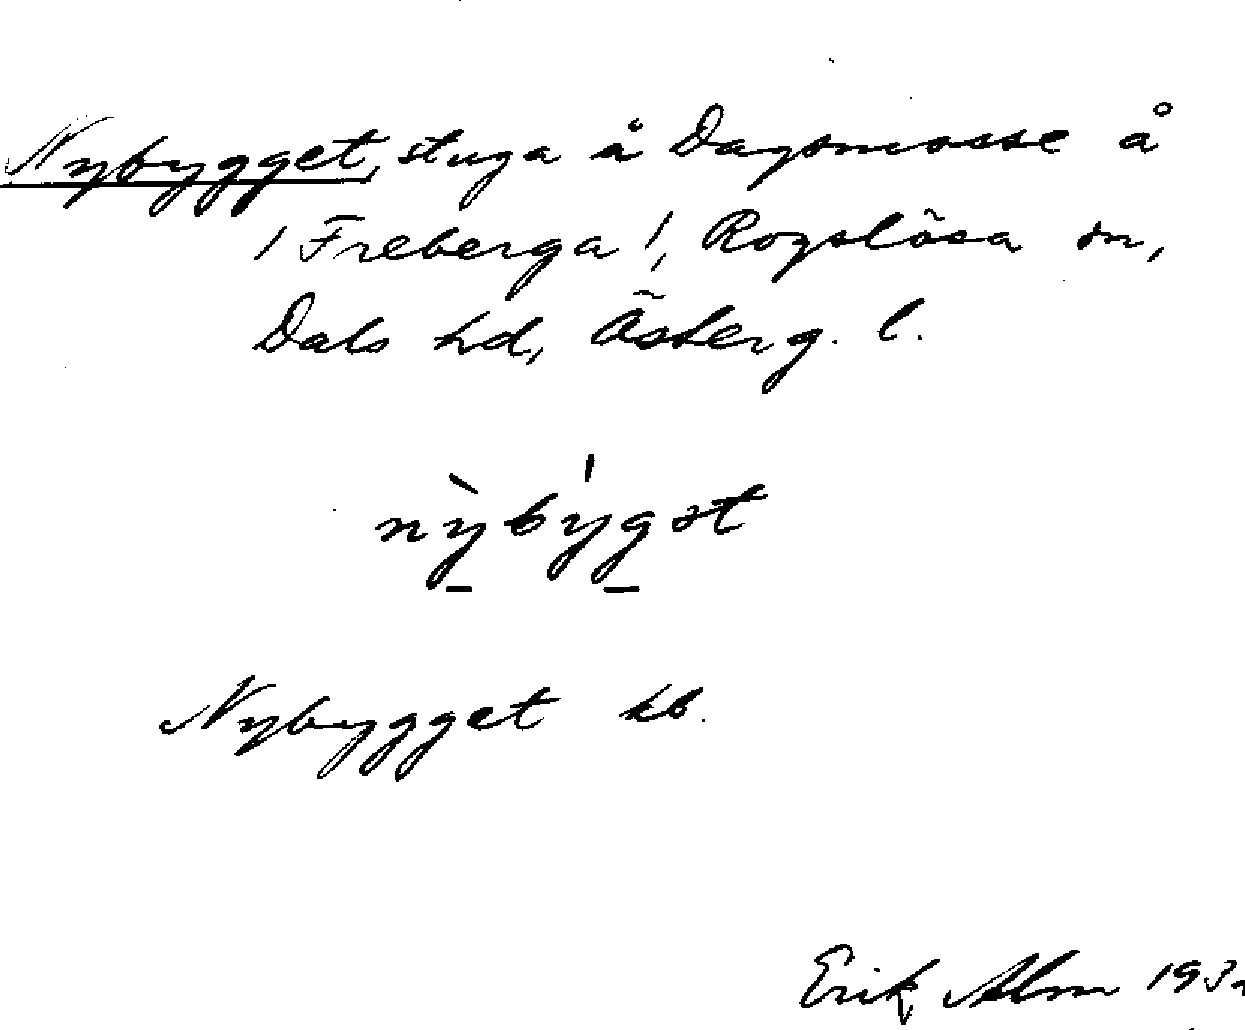 Nybygget, stuga å Dagsmosse å
/ Freberga /, Rogslösa sn,
Dals hd, Österg. l.
nỳbýgət
Nybygget kb.
Erik Alm